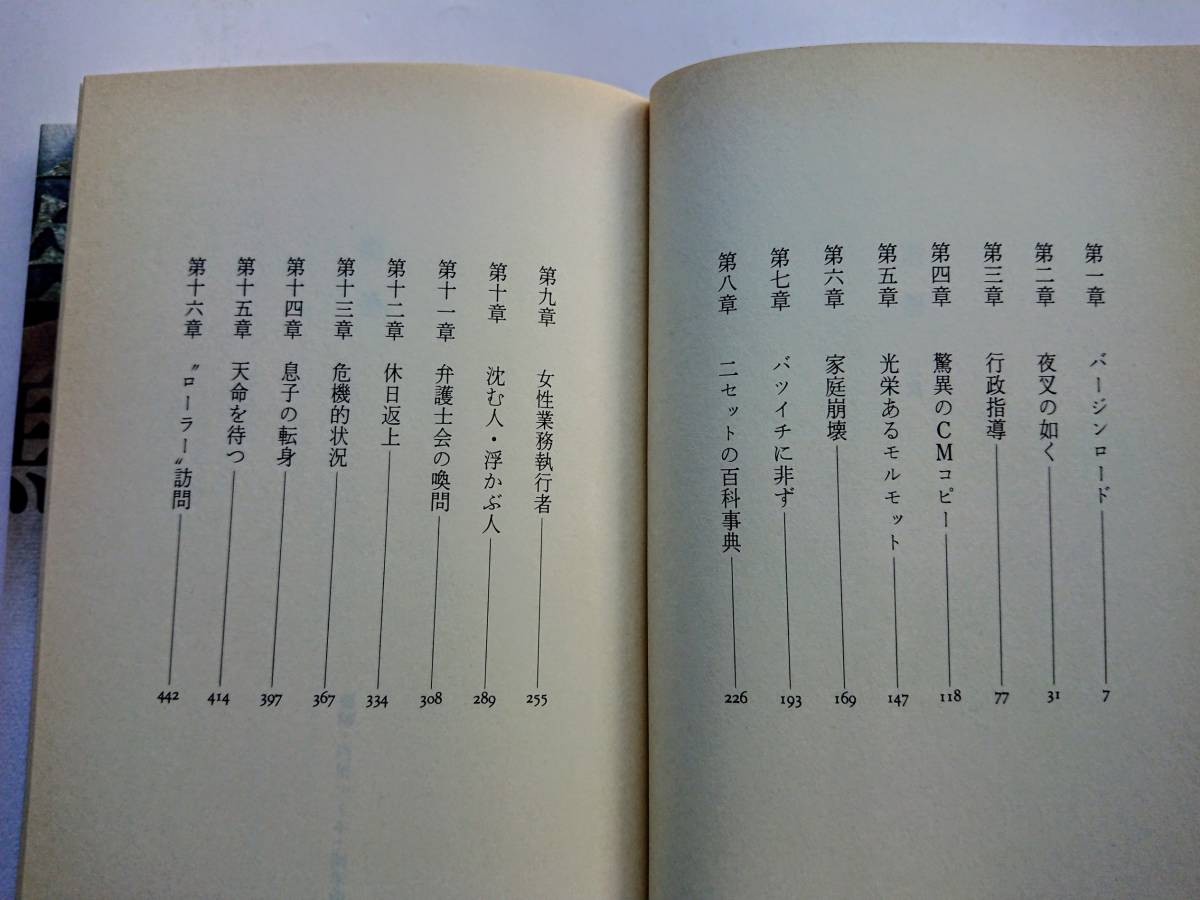 第一章 バージンロード 7
第二章 夜叉の如く 31
第三章 行政指導 77
第四章 驚異のCMコピー 118
第五章 光栄あるモルモット 147
第六章 家庭崩壊 169
第七章 バツイチに非ず 193
第八章 二セットの百科事典 226
第九章 女性業務執行者 255
第十章 沈む人・浮かぶ人 289
第十一章 弁護士会の喚問 308
第十二章 休日返上 334
第十三章 危機的状況 367
第十四章 息子の転身 397
第十五章 天命を待つ 414
第十六章 〝ローラー〟訪問 442